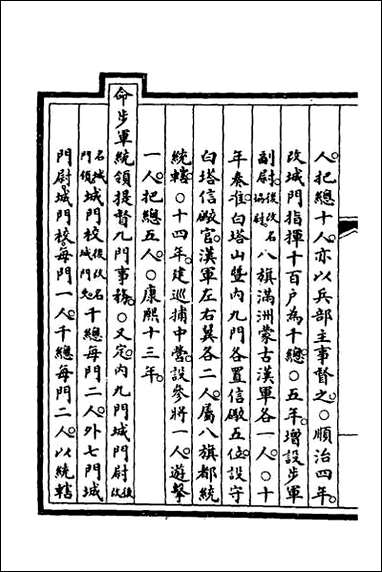 人把總十人亦以兵部主事督之○順治四年
改城門指揮十百戶為千總○五年增設步軍
副尉後改名協尉八旗滿洲蒙古漢軍各一人○十
年奏准白塔山暨內九門各置信礮五位設守
白塔信礮官漢軍左右翼各二人屬八旗都統
統轄○十四年建巡捕中營設參將一人遊擊
一人把總五人○康熙十三年
命步軍統領提督九門事務○又定內九門城門尉後改
名城門領城門校後改名城門吏千總每門二人外七門城
門尉城門校每門一人千總每門二人以統轄